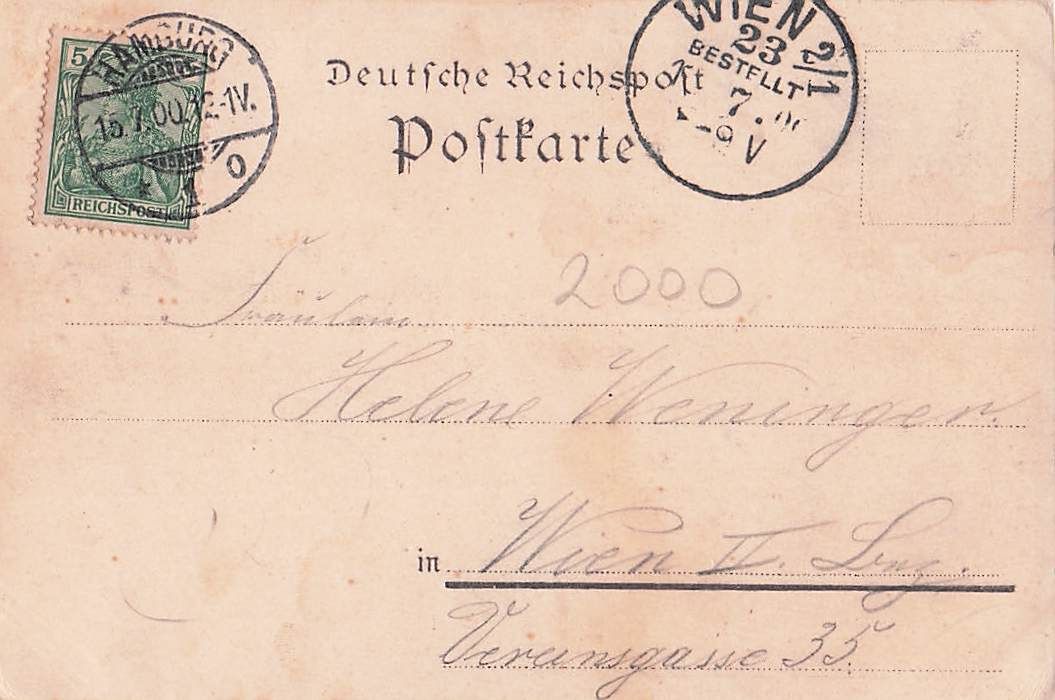 5
HAMBURG
15.7.00.12-1V.
* 1 o
REICHSPOST
Deutsche Reichspost
Postkarte
WIEN 2/1
23
BESTELLT
7.
-9 V
2000
Fräulein
Helene Weninger.
in Wien II. Bez.
Vereinsgasse 35.